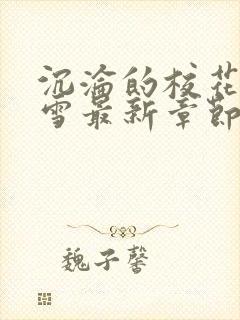 沉沦的校花
雪最新章节
魏子馨